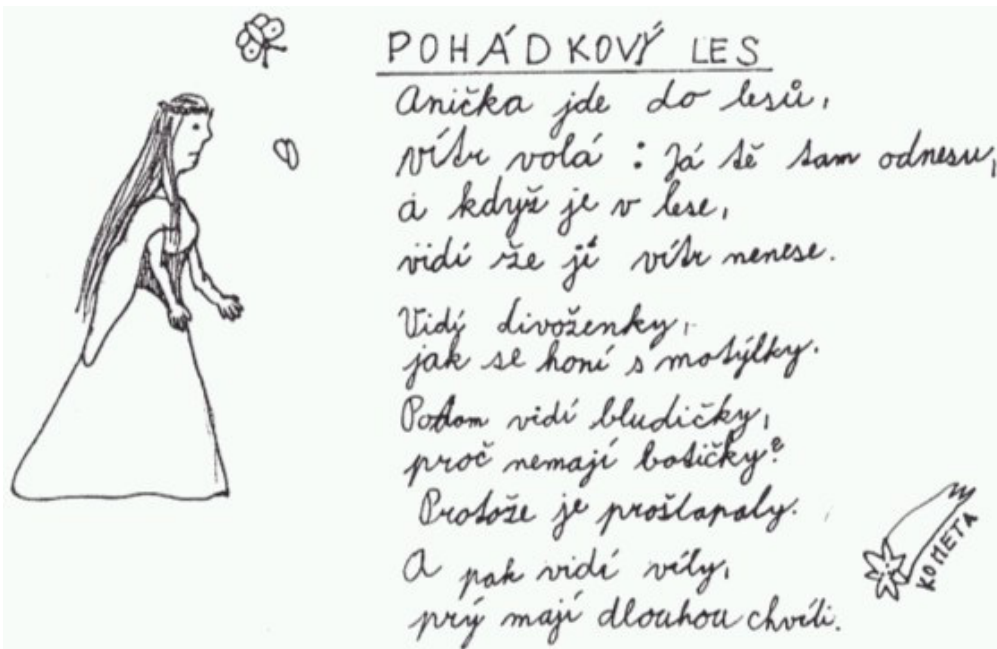 POHÁDKOVÝ LES
Anička jde do lesů,
vítr volá : Já tě tam odnesu,
a když je v lese,
vidí že jí vítr nenese.
Vidí divoženky,
jak se honí s motýlky.
Potom vidí bludičky,
proč nemají botičky?
Protože je prošlapaly.
A pak vidí víly,
prý mají dlouhou chvíli.
KOMETA